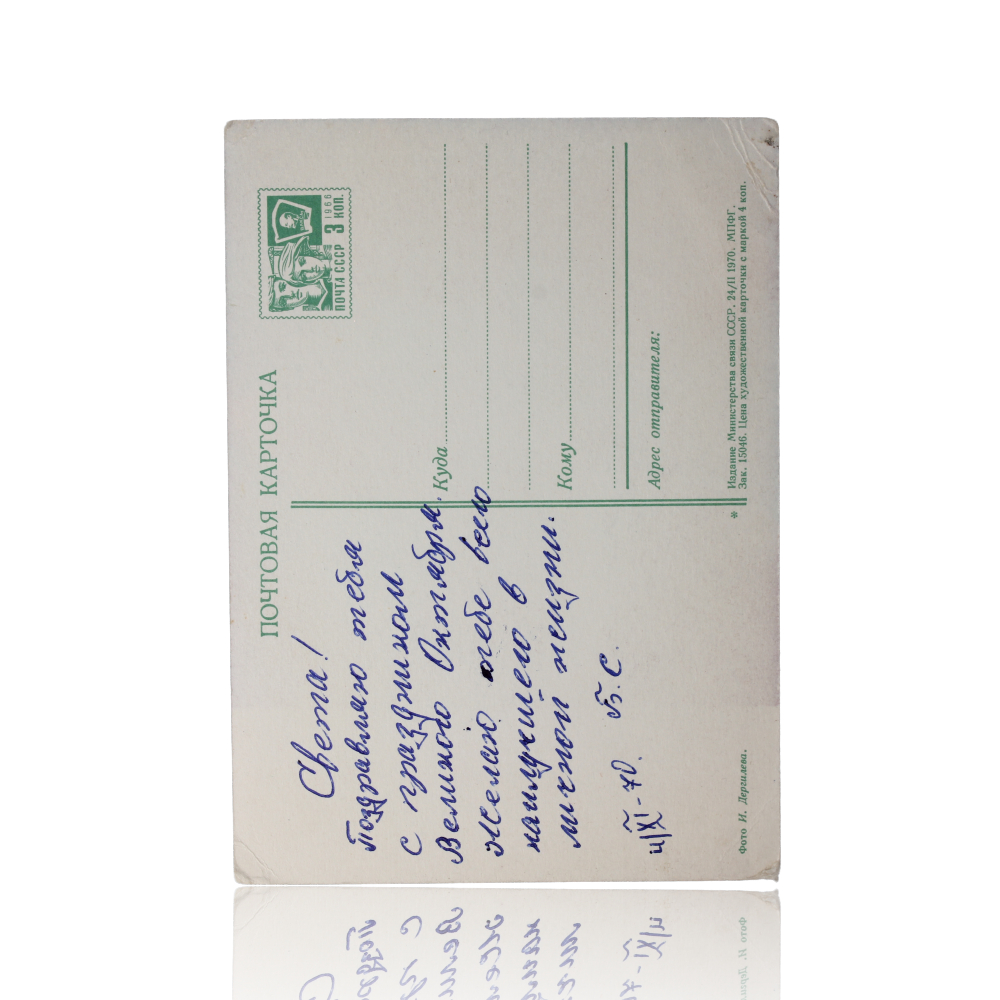 ПОЧТОВАЯ КАРТОЧКА
Света!
Поздравляю тебя
с праздником
Великого Октября.
Желаю тебе всего
наилучшего в
личной жизни.
4/XI-70. Б.С.
Фото И. Дергилева.
ПОЧТА СССР 3 КОП.
1966
Куда
Кому
Адрес отправителя:
* Издание Министерства связи СССР. 24/II 1970. МПФГ.
Зак. 15046. Цена художественной карточки с маркой 4 коп.